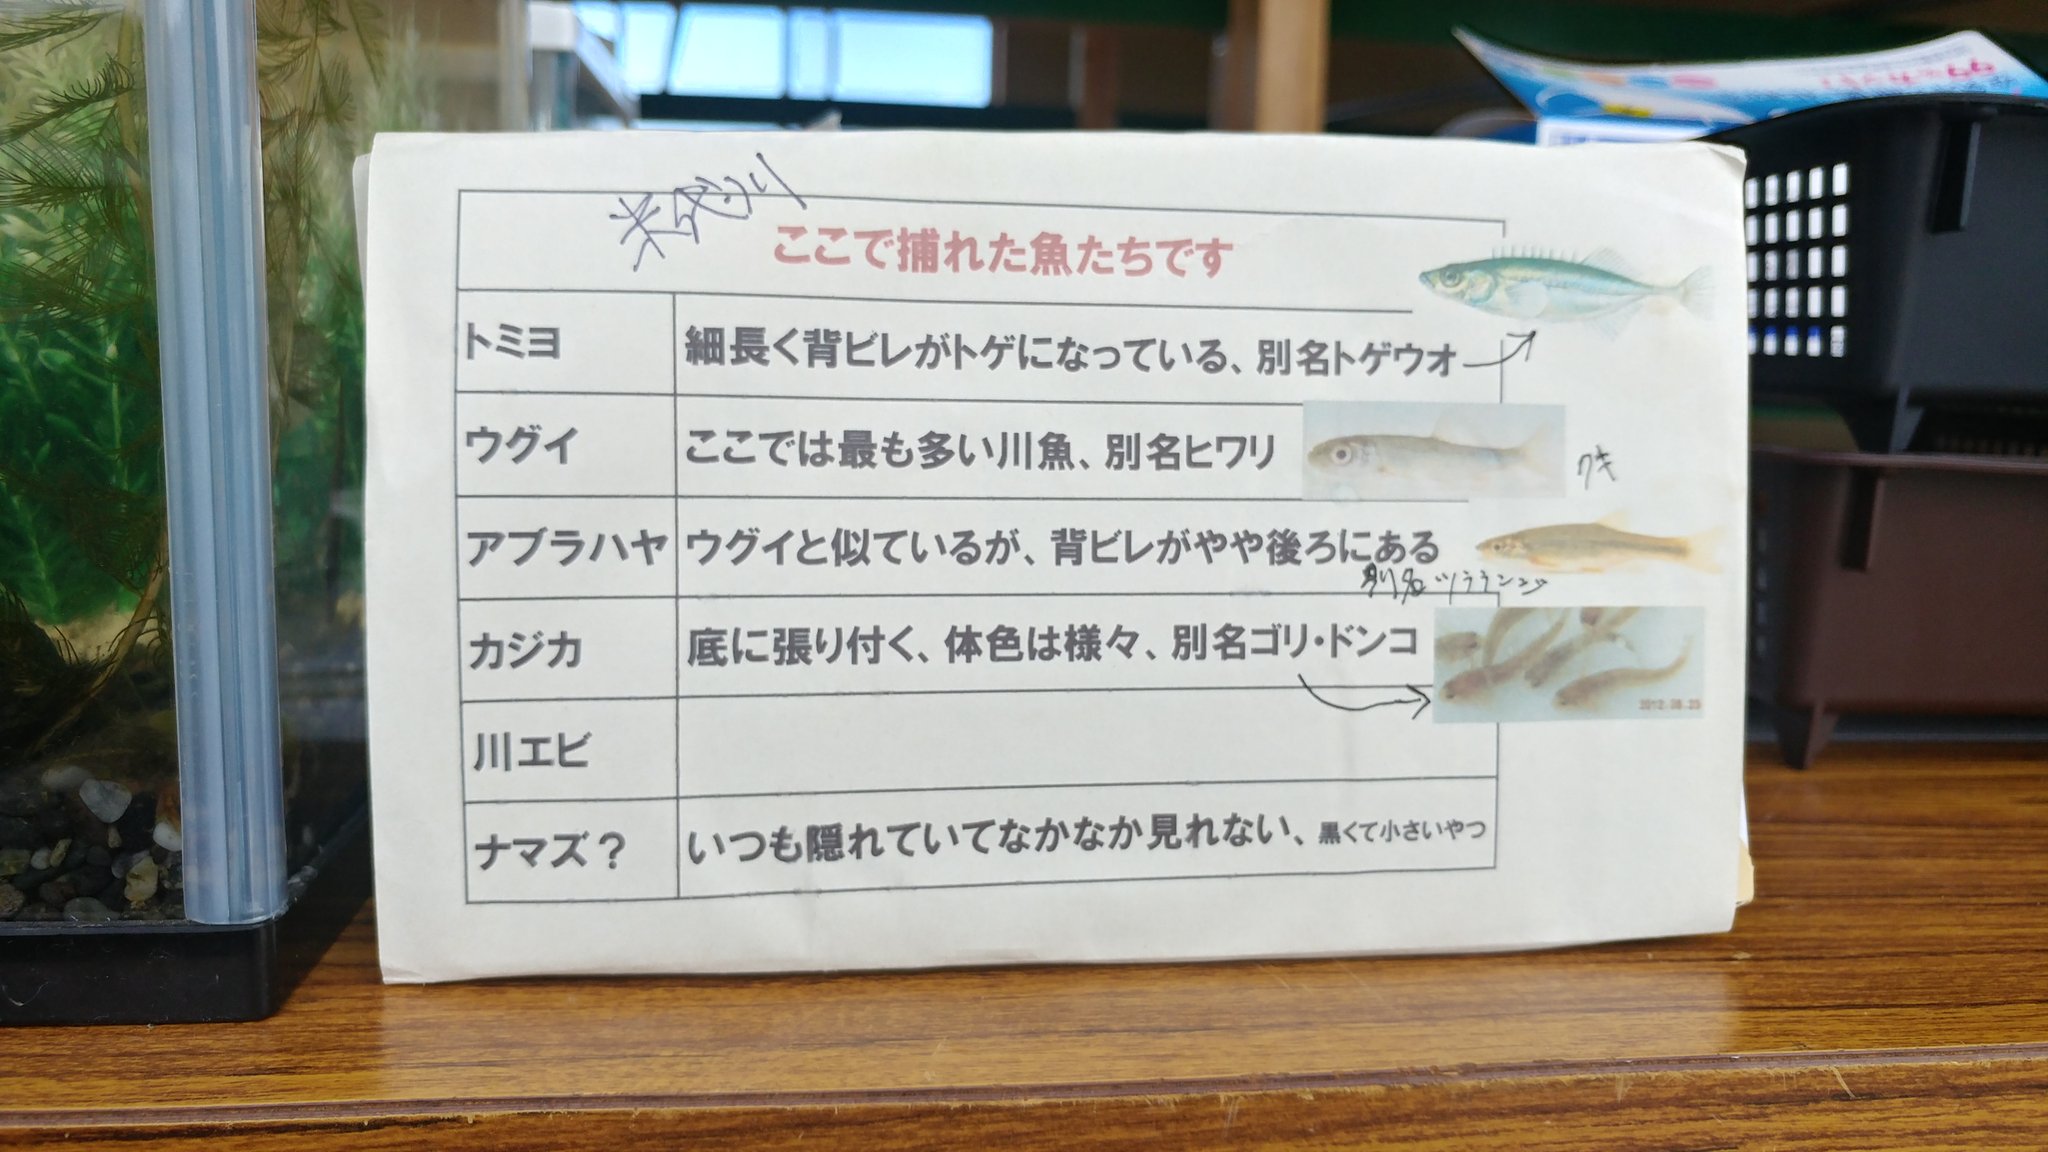 ここで捕れた魚たちです
トミヨ 細長く背ビレがトゲになっている、別名トゲウオ
ウグイ ここでは最も多い川魚、別名ヒワリ
アブラハヤ ウグイと似ているが、背ビレがやや後ろにある
別名
カジカ 底に張り付く、体色は様々、別名ゴリ・ドンコ
川エビ
ナマズ? いつも隠れていてなかなか見れない、黒くて小さいやつ